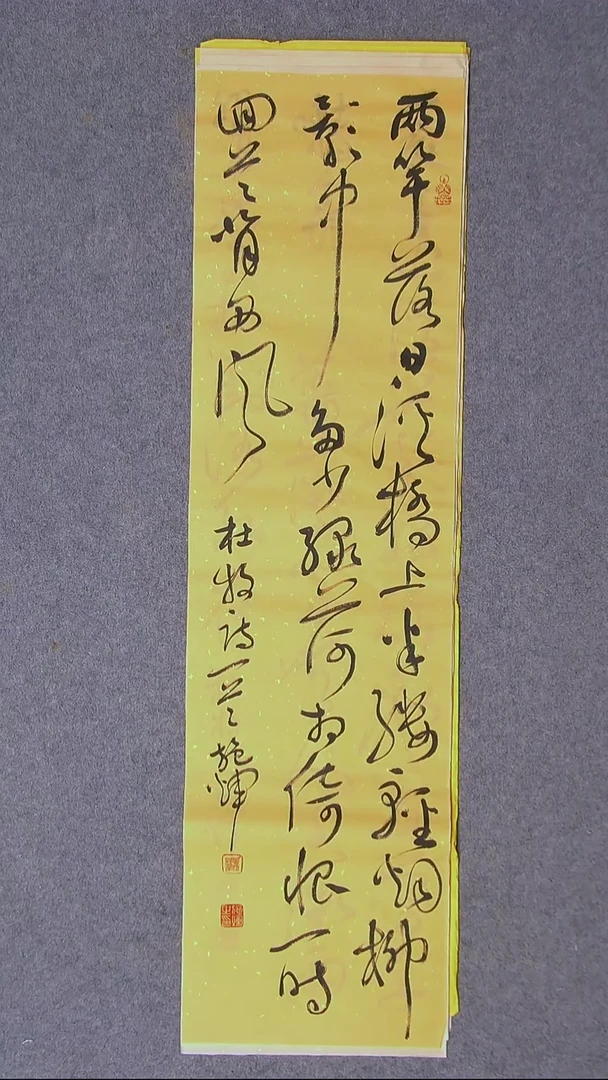 兩竿落日溪橋上半縷輕烟柳
影中多少綠荷相倚恨一時
囬首背西風
杜牧詩一首